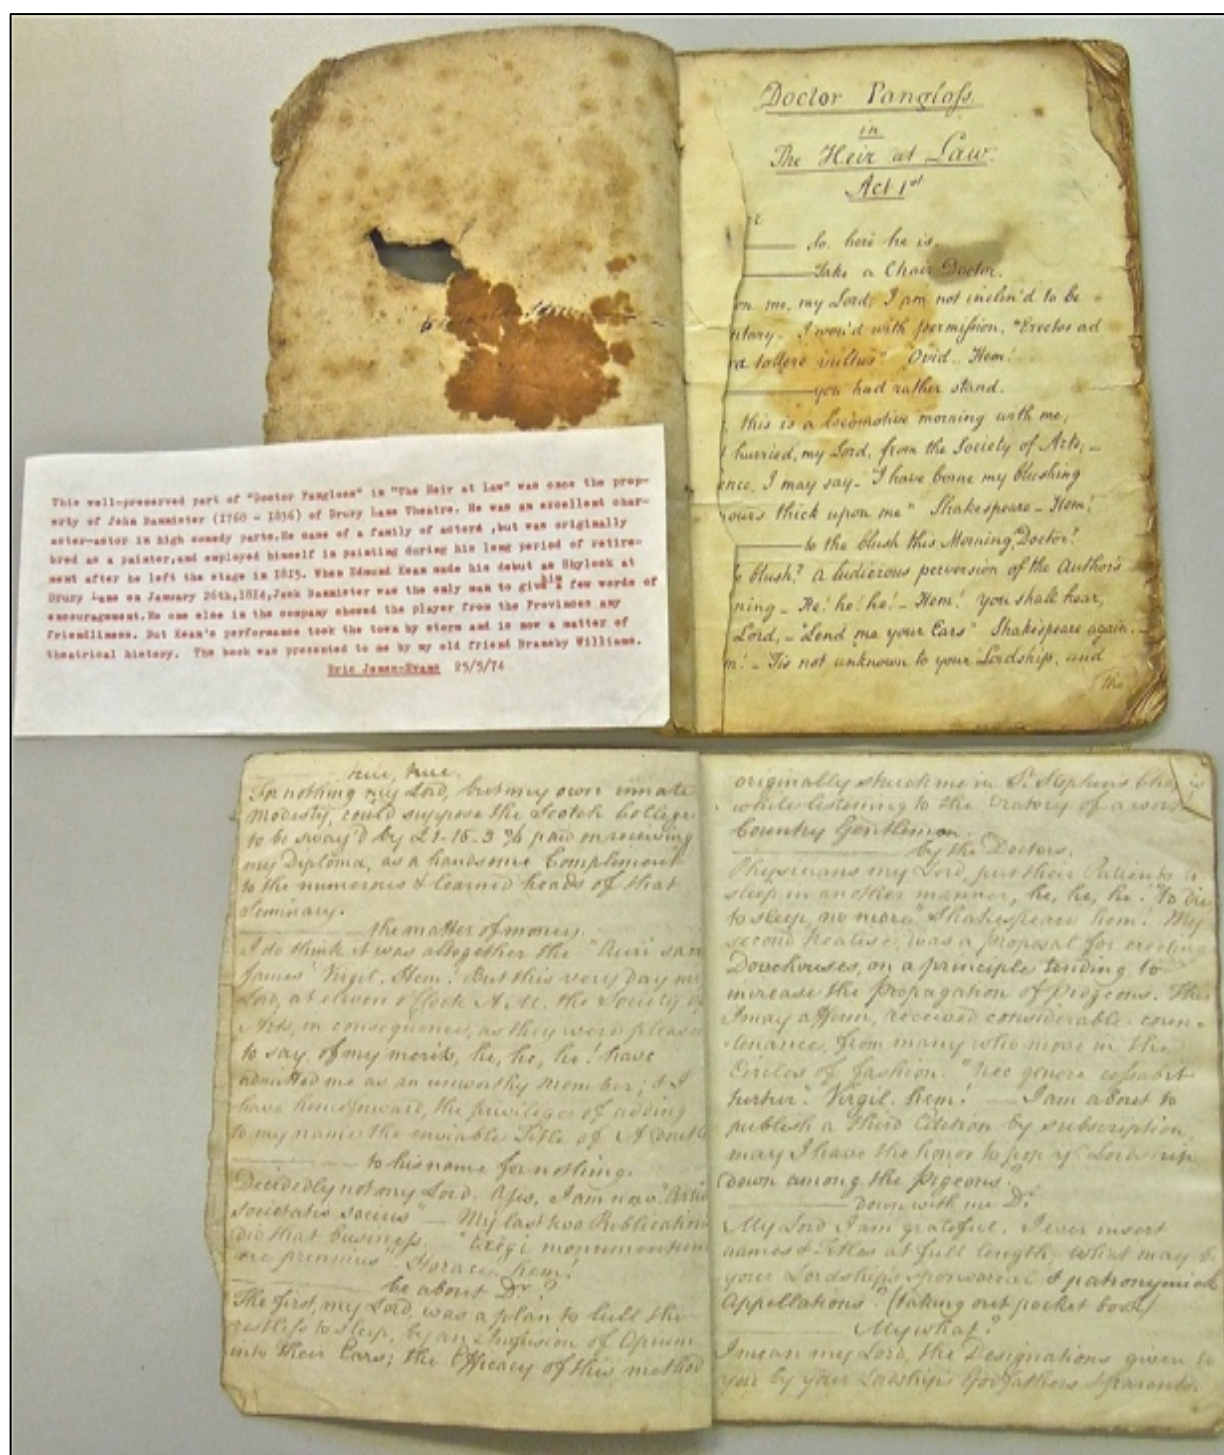 Doctor Pangloſs.
in
The Heir at Law.
Act 1st
So here he is.
Take a Chair Doctor.
on me, my Lord; I am not inclin'd to be
ntary. I wou'd with permiſsion, "Erectos ad
ra tollere vultus" Ovid.. Hem!
you had rather stand.
this is a locomotive morning with me,
hurried, my Lord, from the Society of Arts; –
ence, I may say – I have borne my blushing
ours thick upon me" Shakespeare – Hem!
to the blush this Morning, Doctor?
blush? a ludicrous perversion of the Author's
ning – He! he! he! – Hem! you shall hear,
Lord, – "Lend me your Ears" Shakespeare again. –
m! – Tis not unknown to your Lordship, and
(tho
This well-preserved part of "Doctor Pangloss" in "The Heir at Law" was once the prop-
erty of John Bannister (1760 - 1836) of Drury Lane Theatre. He was an excellent char-
acter-actor in high comedy parts. He came of a family of actors ,but was originally
bred as a painter,and employed himself in painting during his long period of retire-
ment after he left the stage in 1815. When Edmund Kean made his debut as Shylock at
Drury Lane on January 26th,1814,Jack Bannister was the only man to give him a few words of
encouragement.No one else in the company showed the player from the Provinces any
friendliness. But Kean's performance took the town by storm and is now a matter of
theatrical history. The book was presented to me by my old friend Bransby Williams.
Eric Jones-Evans 25/5/74
true, true.
For nothing my Lord, but my own innate
Modesty, could suppose the Scotch College
to be sway'd by £1-15-3 ¾ paid on receiving
my Diploma, as a handsome Compliment
to the numerous & learned heads of that
Seminary.
the matter of money.
I do think it was altogether the "Auri sacr
fames" Virgil. Hem! But this very day my
Lord, at eleven o'Clock A.M. the Society of
Arts, in consequence, as they were pleased
to say, of my merits, he, he, he! have
admitted me as an unworthy Member; & I
have henceforward, the privilege of adding
to my name the enviable Title of A double
to his name for nothing.
Decidedly not my Lord. Aſs, I am now "Artiu
Societatis Socius" — My last two Publications
did that business. "Exegi monumentum
ære perennius" Horace, hem!
be about Dr?
The first, my Lord, was a plan to lull the
restleſs to sleep, by an Infusion of Opium
into their Ears; the Efficacy of this method
originally struck me in St Stephens
while listening to the Oratory of a
Country Gentleman.
by the Doctors.
Physicians my Lord, put their Patients to
sleep in another manner, he, he, he! "To die
to sleep, no more" Shakespeare hem! My
second Treatise, was a proposal for erecting
Dovehouses, on a principle tending to
increase the Propagation of pidgeons. This
I may affirm, received considerable coun-
tenance, from many who move in the
Circles of fashion. "Nec gemere ceſsabit
turtur." Virgil. hem! — I am about to
publish a third Edition by subscription,
may I have the honor to pop yr Lordship
down among the pigeons?
Down with me Dr
My Lord I am grateful. I ever insert
names & Titles at full length, what may be
your Lordship's sponsorial & patronymick
Appellations? (taking out pocket book)
My what?
I mean my Lord, the Designations given to
you by your Lordship's Godfathers & parents.